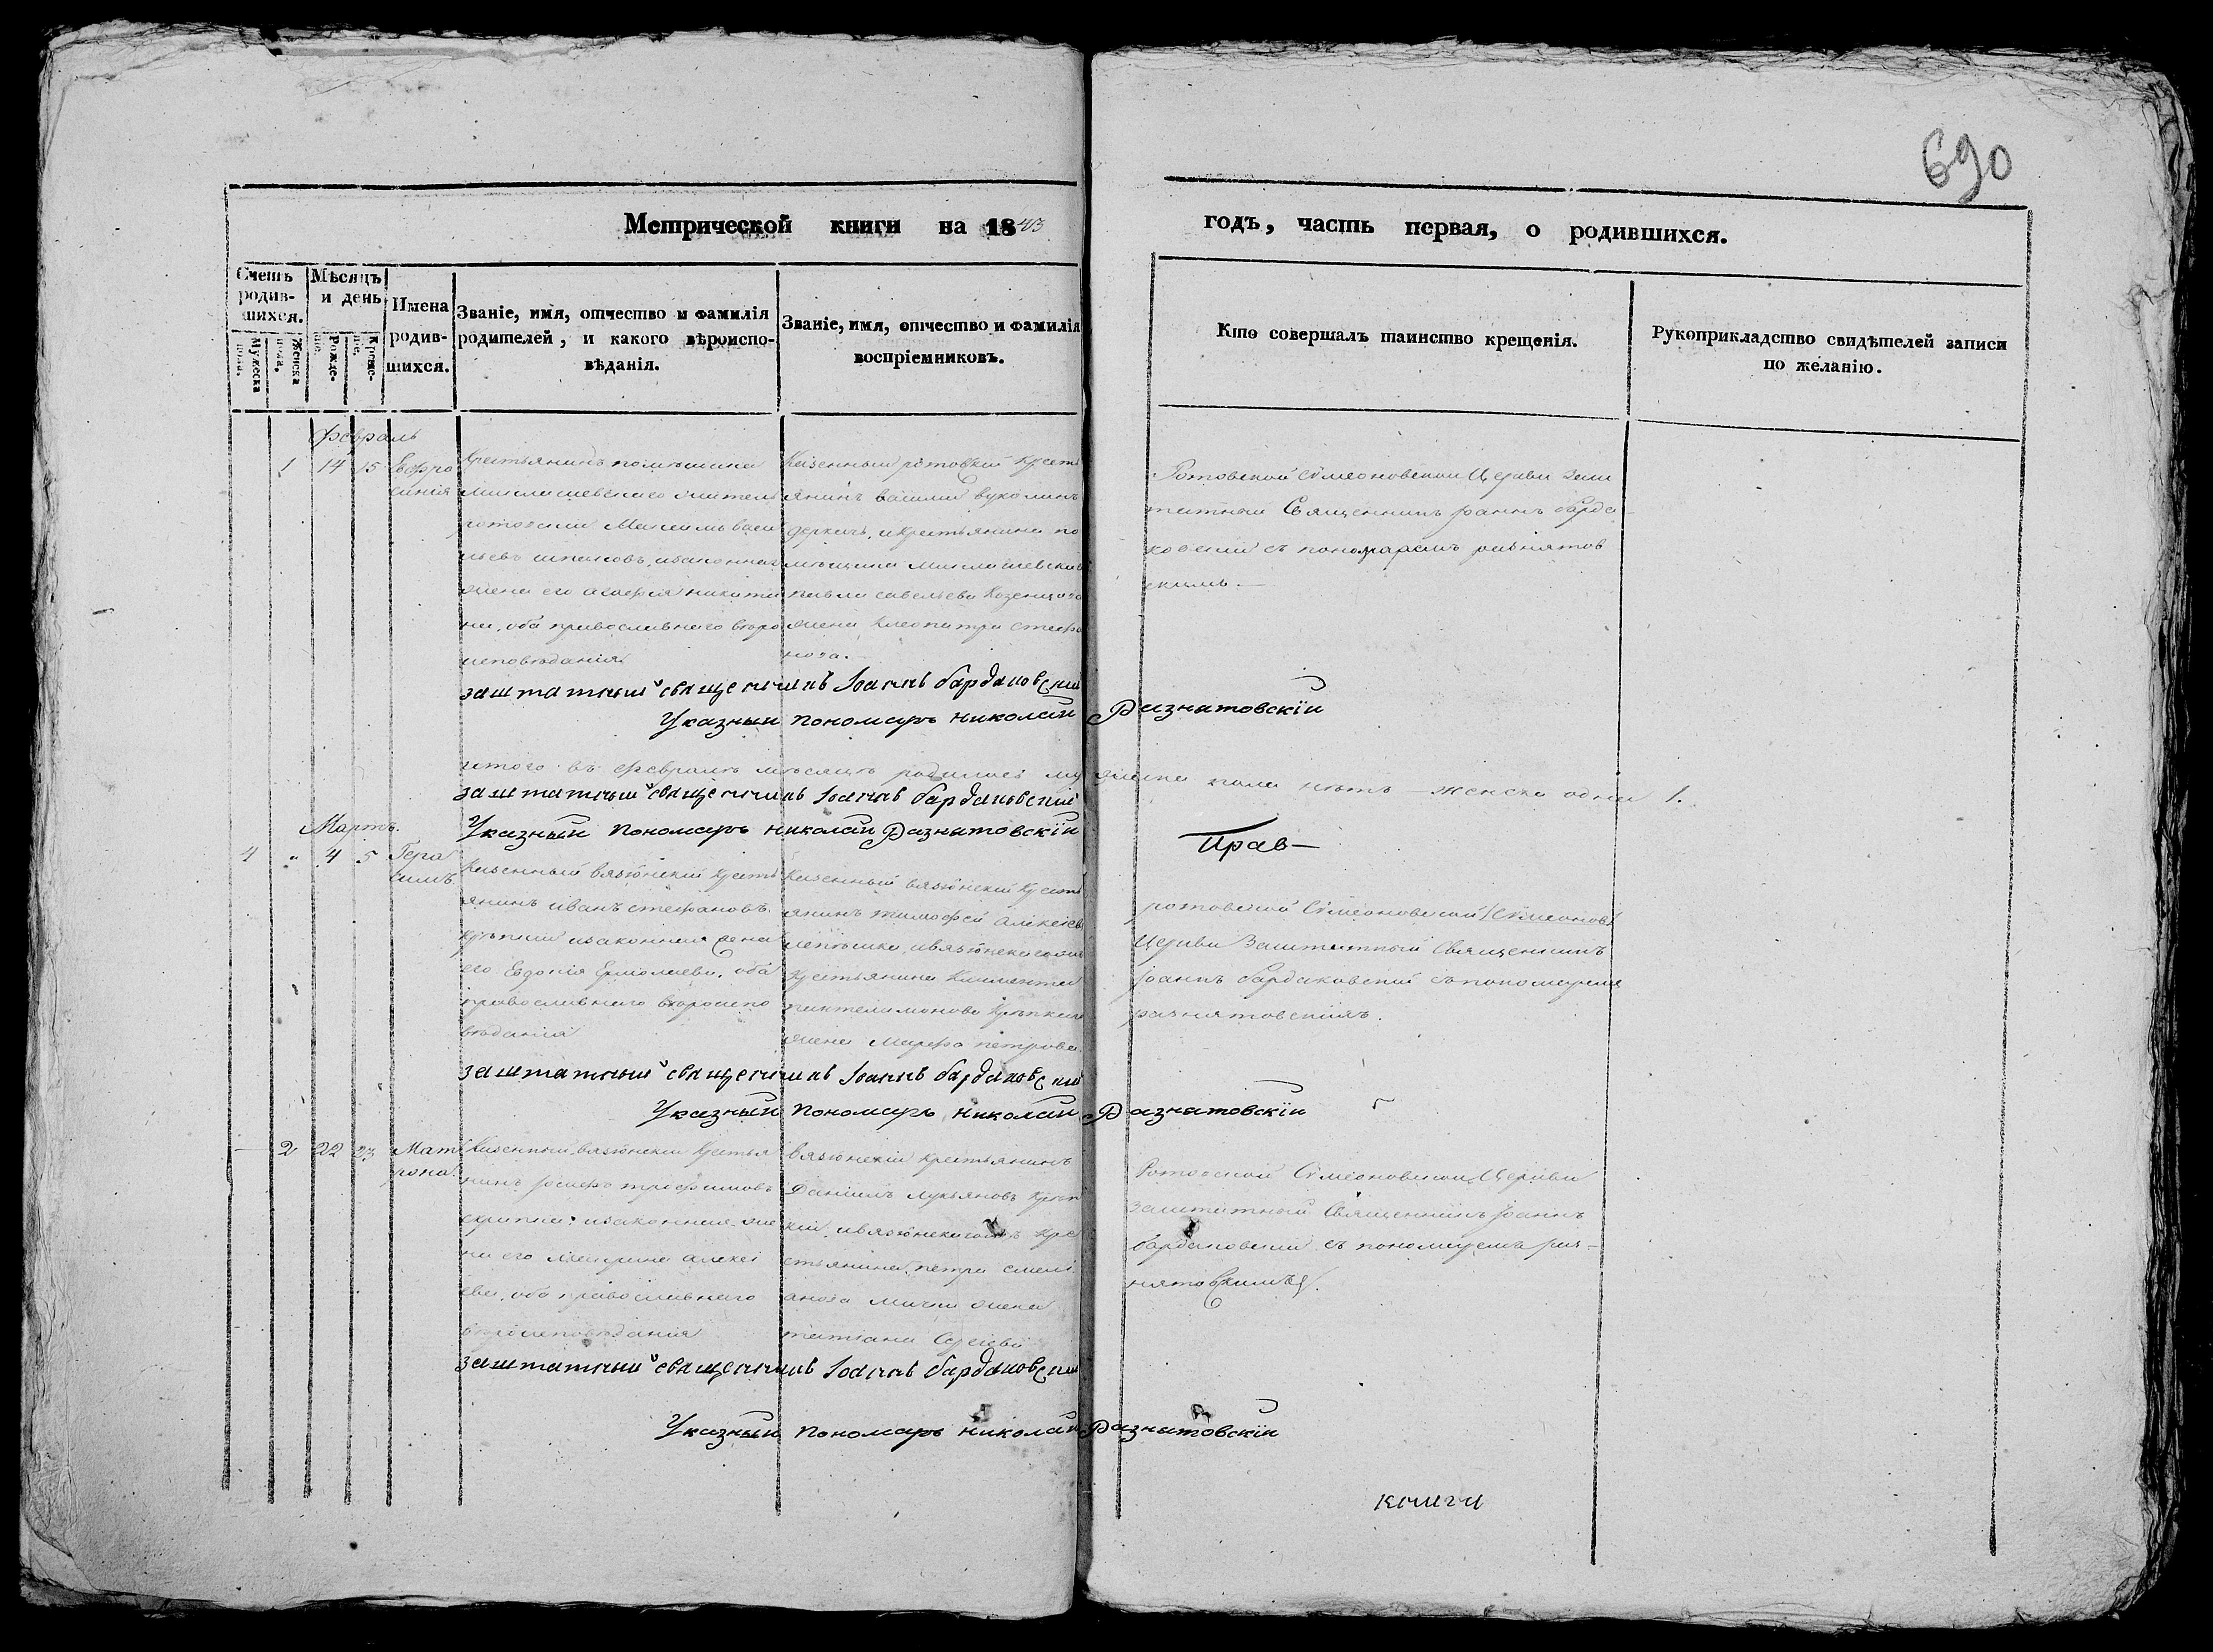 690
Метрической книги на 1843
годъ, часть первая, о родившихся.
Счетъ родив-шихся.
Мужеска пола.
Женска пола.
Мѣсяцъ и день
Рожде-нія.
Креще-нія.
Имена родив-шихся.
Званіе, имя, отчество и фамилія
родителей, и какого вѣроиспо-
вѣданія.
Званіе, имя, отчество и фамилія
воспріемниковъ.
Кто совершалъ таинство крещенія.
Рукоприкладство свидѣтелей записи
по желанію.
Февраль
1 14 15 Евфро
синія
Крестьянинъ помѣщика
Миклашевскаго житель
ротовский Максимъ Васи
льевъ, изаконная
жена его Агафія Никити
на, оба православнаго вѣро
исповѣданія.
Казенный ротовский крест
янинъ
и крестьянина по
мѣщика Миклашевскаго
Павла Савельева
жена Клеопатра Стефа
нова.
Ротовской Симеоновской Церкви заш
татный Священникъ Іоаннъ Барда
ковский съ пономаремъ Разнятов
скимъ.—
заштатный священникъ Іоаннъ Бардаковский
Указный пономарь Николай Разнатовскій
итого въ февралѣ мѣсяцѣ родилось мужеска пола нѣтъ — женска одна 1.
заштатный священникъ Іоаннъ Бардаковский
Указный пономарь Николай Разнатовскій
Прав—
Мартъ.
4 " 4 5 Гера
симъ
Казенный вязонский крест
янинъ Иванъ Стефановъ
изаконная жена
его Евдокія Ермолаева, оба
православнаго вѣроиспо
вѣданія
Казенный вязонский крест
янинъ Тимофей Алексѣевъ
крестьянина Климентия
Пантелимонова
жена Марфа Петрова.
ротовской Симеоновской
Церкви Заштатный Священникъ
Іоаннъ Бардаковский съ пономаремъ
разнятовскимъ.
заштатный священникъ Іоаннъ Бардаковский
Указный пономарь Николай Разнатовскій
— 2 22 23 Мат
рона
Казенный вязонский крестья
нинъ Іосифъ Трофимовъ
изаконная же
на его Алексѣ
ева, оба православнаго
вѣроисповѣданія
Вязонский крестьянинъ
Даніилъ Лукьяновъ
кре
стьянина Петра Емелі
анова жена
татіана
Ротовской Симеоновской Церкви
Заштатный Священникъ Іоаннъ
Бардаковский съ пономаремъ раз-
нятовскимъ.
заштатный священникъ Іоаннъ Бардаковский
Указный пономарь Николай Разнатовскій
книги